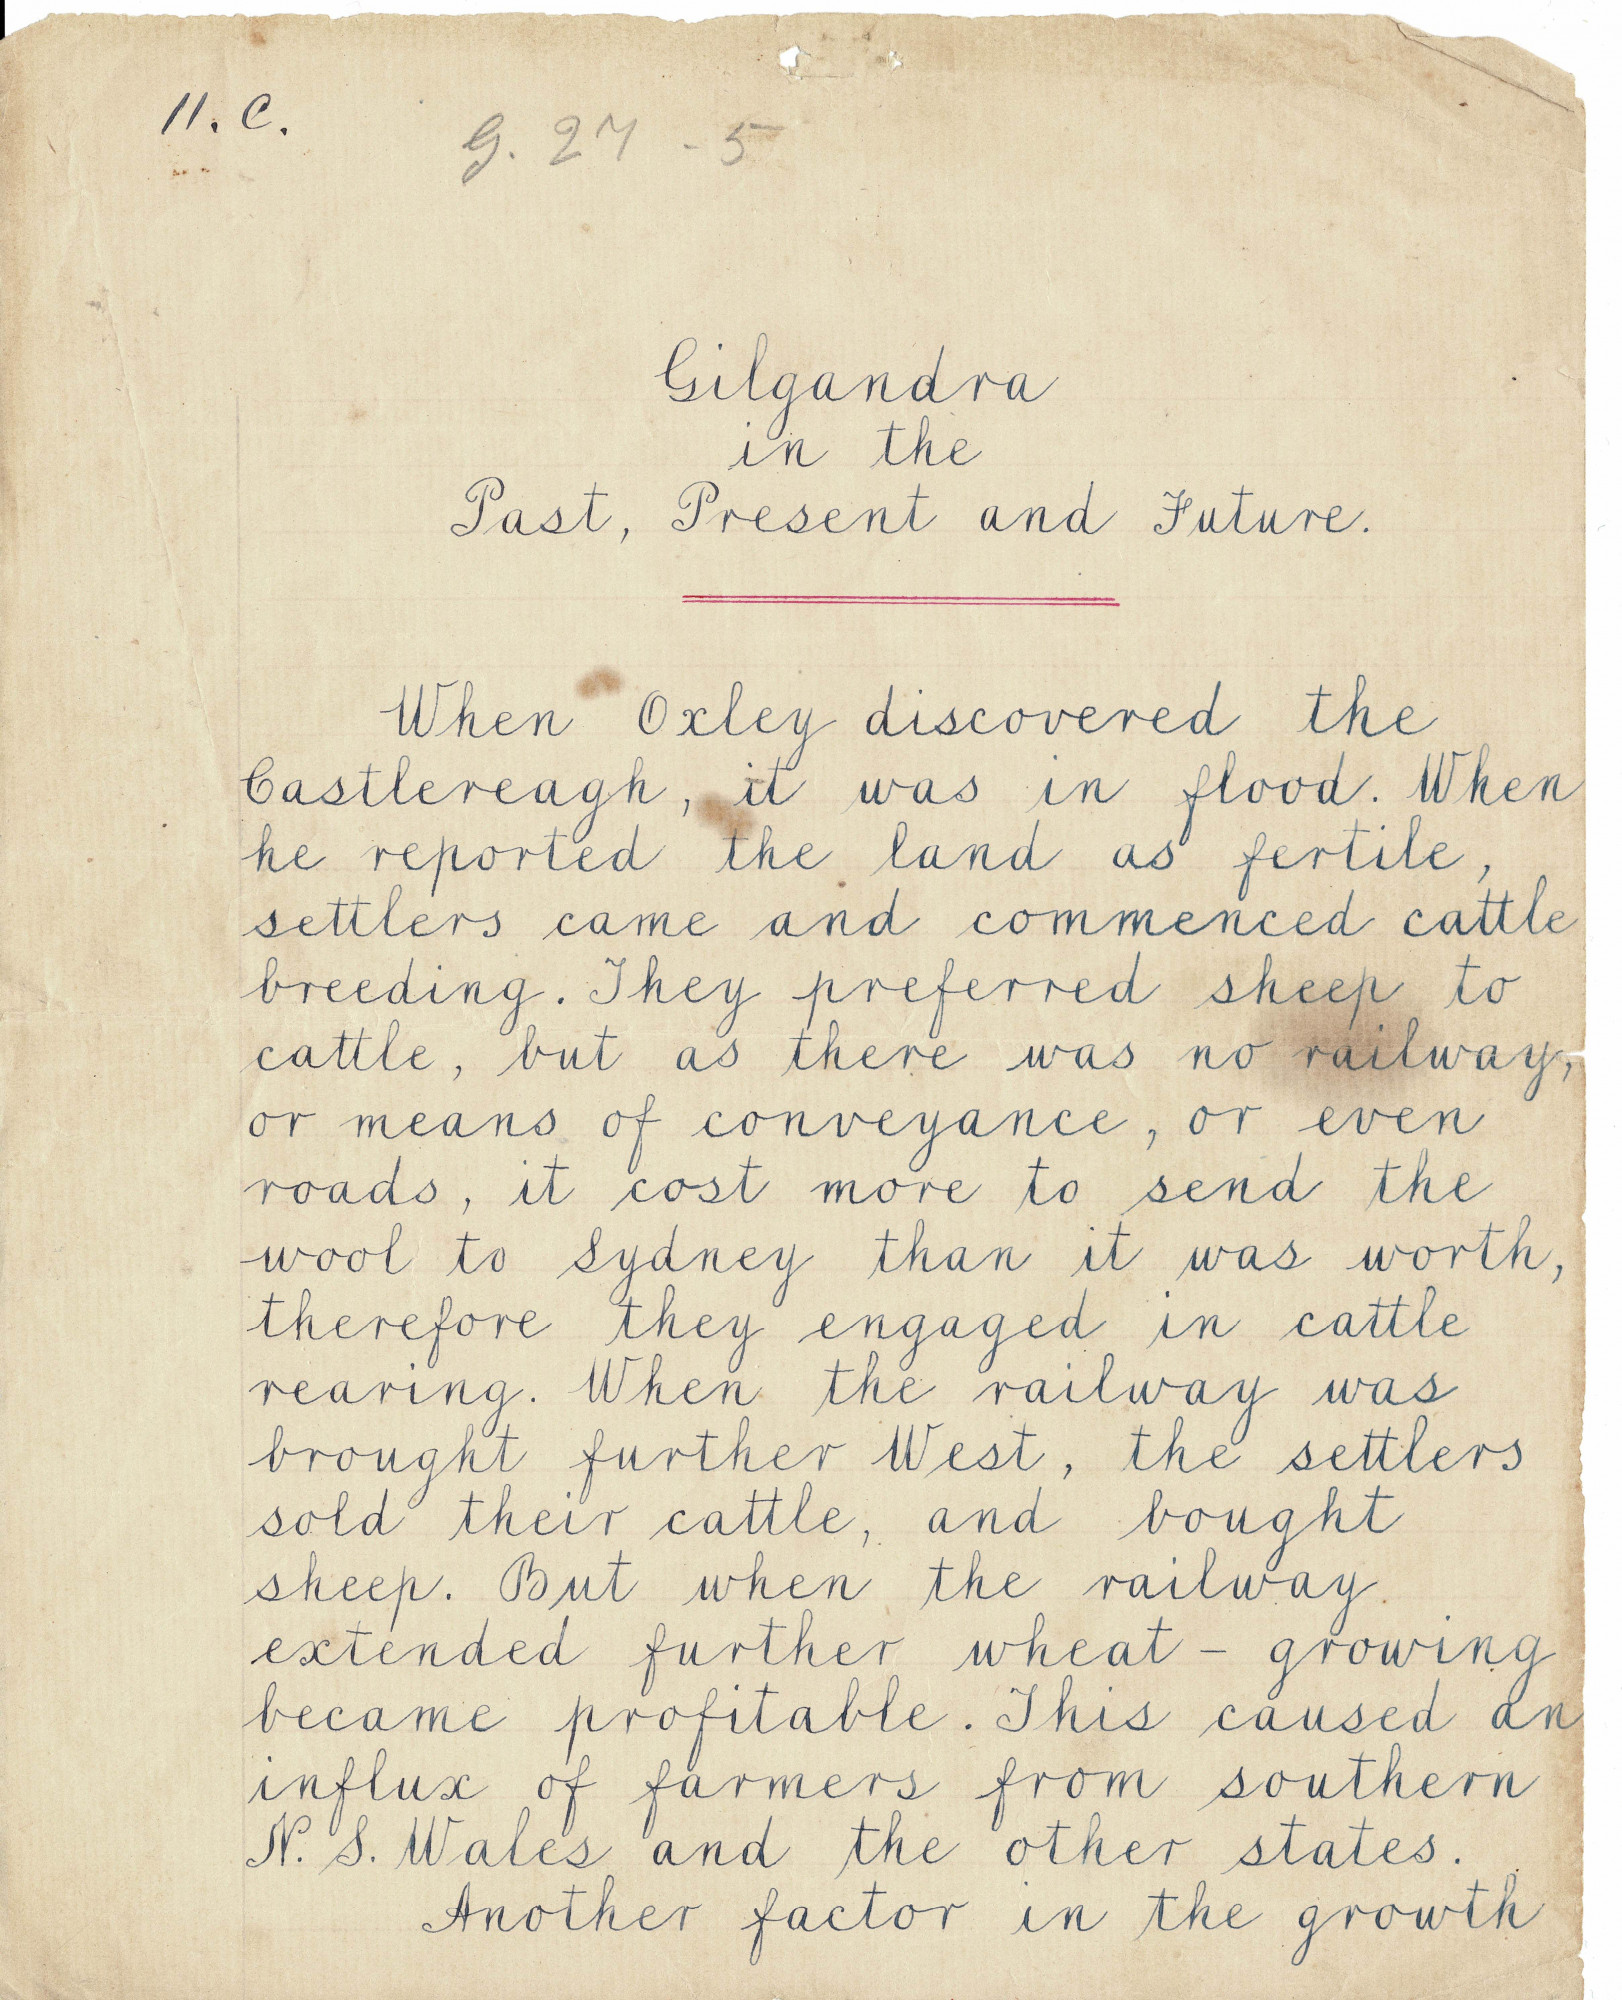 11. C.
G. 27 - 5
Gilgandra
in the
Past, Present and Future.
When Oxley discovered the
Castlereagh, it was in flood. When
he reported the land as fertile,
settlers came and commenced cattle
breeding. They preferred sheep to
cattle, but as there was no railway,
or means of conveyance, or even
roads, it cost more to send the
wool to Sydney than it was worth,
therefore they engaged in cattle
rearing. When the railway was
brought further West, the settlers
sold their cattle, and bought
sheep. But when the railway
extended further wheat - growing
became profitable. This caused an
influx of farmers from southern
N. S. Wales and the other states.
Another factor in the growth